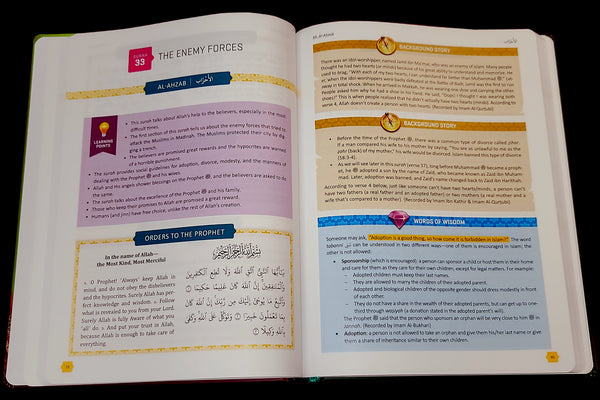 SURAH
33
THE ENEMY FORCES
AL-AHZAB الأحزاب
LEARNING
POINTS
• This surah talks about Allah's help to the believers, especially in the most
difficult times.
• The first section of this surah tells us about the enemy forces that tried to
attack the Muslims in Madinah. The Muslims protected their city by dig-
ging a trench.
• The believers are promised great rewards and the hypocrites are warned
of a horrible punishment.
• The surah provides social guidelines for adoption, divorce, modesty, and the manners of
dealing with the Prophet ﷺ and his wives.
• Allah and His angels shower blessings on the Prophet ﷺ, and the believers are asked to do
the same.
• The surah talks about the excellence of the Prophet ﷺ and his family.
• Those who keep their promises to Allah are promised a great reward.
• Humans (and jinn) have free choice, unlike the rest of Allah's creation.
ORDERS TO THE PROPHET
In the name of Allah—
the Most Kind, Most Merciful
1. O Prophet! ˹Always˺ keep Allah
in mind, and do not obey the disbelievers
and the hypocrites. Surely Allah has per-
fect knowledge and wisdom. 2. Follow
what is revealed to you from your Lord.
Surely Allah is Fully Aware of what you
˹all˺ do. 3. And put your trust in Allah,
because Allah is enough to take care of
everything.
بسم الله الرحمن الرحيم
يَٰٓأَيُّهَا ٱلنَّبِيُّ ٱتَّقِ ٱللَّهَ وَلَا تُطِعِ ٱلْكَٰفِرِينَ
وَٱلْمُنَٰفِقِينَ إِنَّ ٱللَّهَ كَانَ عَلِيمًا حَكِيمًا ١
وَٱتَّبِعْ مَا يُوحَىٰٓ إِلَيْكَ مِن رَّبِّكَ إِنَّ ٱللَّهَ كَانَ
بِمَا تَعْمَلُونَ خَبِيرًا ٢ وَتَوَكَّلْ عَلَى ٱللَّهِ وَكَفَىٰ
بِٱللَّهِ وَكِيلًا ٣
33. Al-Ahzab
الأحزاب
BACKGROUND STORY
There was an idol-worshipper, named Jamîl ibn Ma'mar, who was an enemy of Islam. Many people
thought he had two hearts (or minds) because of his great ability to understand and memorize. He
used to brag, "With each of my two hearts, I can understand far better than Muhammad ﷺ." Let
us see, when the idol-worshippers were badly defeated at the Battle of Badr, Jamîl was the first to run
away in total shock. When he arrived in Makkah, he was wearing one shoe and carrying the other.
People asked him why he had a shoe in his hand. He said, "Oops! I thought I was wearing both
shoes!" This is when people realized that he didn't actually have two hearts (minds). According to
verse 4, Allah doesn't create a person with two hearts. (Recorded by Imam Al-Qurtubi)
BACKGROUND STORY
• Before the time of the Prophet ﷺ, there was a common type of divorce called zihar.
If a man compared his wife to his mother by saying, "You are as unlawful to me as the
zahr (back) of my mother," his wife would be divorced. Islam banned this type of divorce
(58:3-4).
• As we will see later in this surah (verse 37), long before Muhammad ﷺ became a proph-
et, he ﷺ adopted a son by the name of Zaid, who became known as Zaid ibn Muham-
mad. Later, adoption was banned, and Zaid's name changed back to Zaid ibn Harithah.
According to verse 4 below, just like someone can't have two hearts/minds, a person can't
have two fathers (a real father and an adoptive father) or two mothers (a real mother and a
wife that's compared to a mother). (Recorded by Imam Ibn Kathir & Imam Al-Qurtubi)
WORDS OF WISDOM
Someone may ask, "Adoption is a good thing, so how come it is forbidden in Islam?" The word
tabanni تبني can be understood in two different ways—one of them is encouraged in Islam, the
other is not allowed:
• Sponsorship (which is encouraged): a person can sponsor a child or host them in their home
and care for them as they care for their own children, except for legal matters. For example:
- Adopted children must keep their last names.
- They are allowed to marry the children of their adopted parent.
- Adopted and biological children of the opposite gender should dress modestly in front
of each other.
- They do not have a share in the wealth of their adopted parents, but can get up to one-
third through wasiyah (a donation stated in the adopted parent's will).
The Prophet ﷺ said that the person who sponsors an orphan will be very close to him ﷺ in
Jannah. (Recorded by Imam Al-Bukhari)
• Adoption: a person is not allowed to take an orphan and give them his/her last name or give
them a share of inheritance similar to their own children.